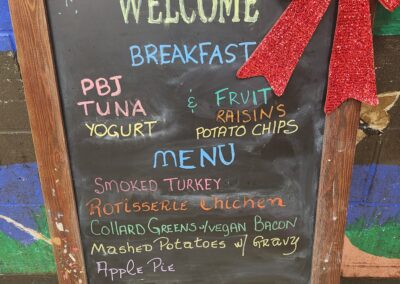 WELCOME
BREAKFAST
PBJ
TUNA & FRUIT
RAISINS
YOGURT POTATO CHIPS
MENU
SMOKED TURKEY
ROTISSERIE CHICKEN
COLLARD GREENS w/VEGAN BACON
MASHED POTATOES w/ GRAVY
APPLE PIE